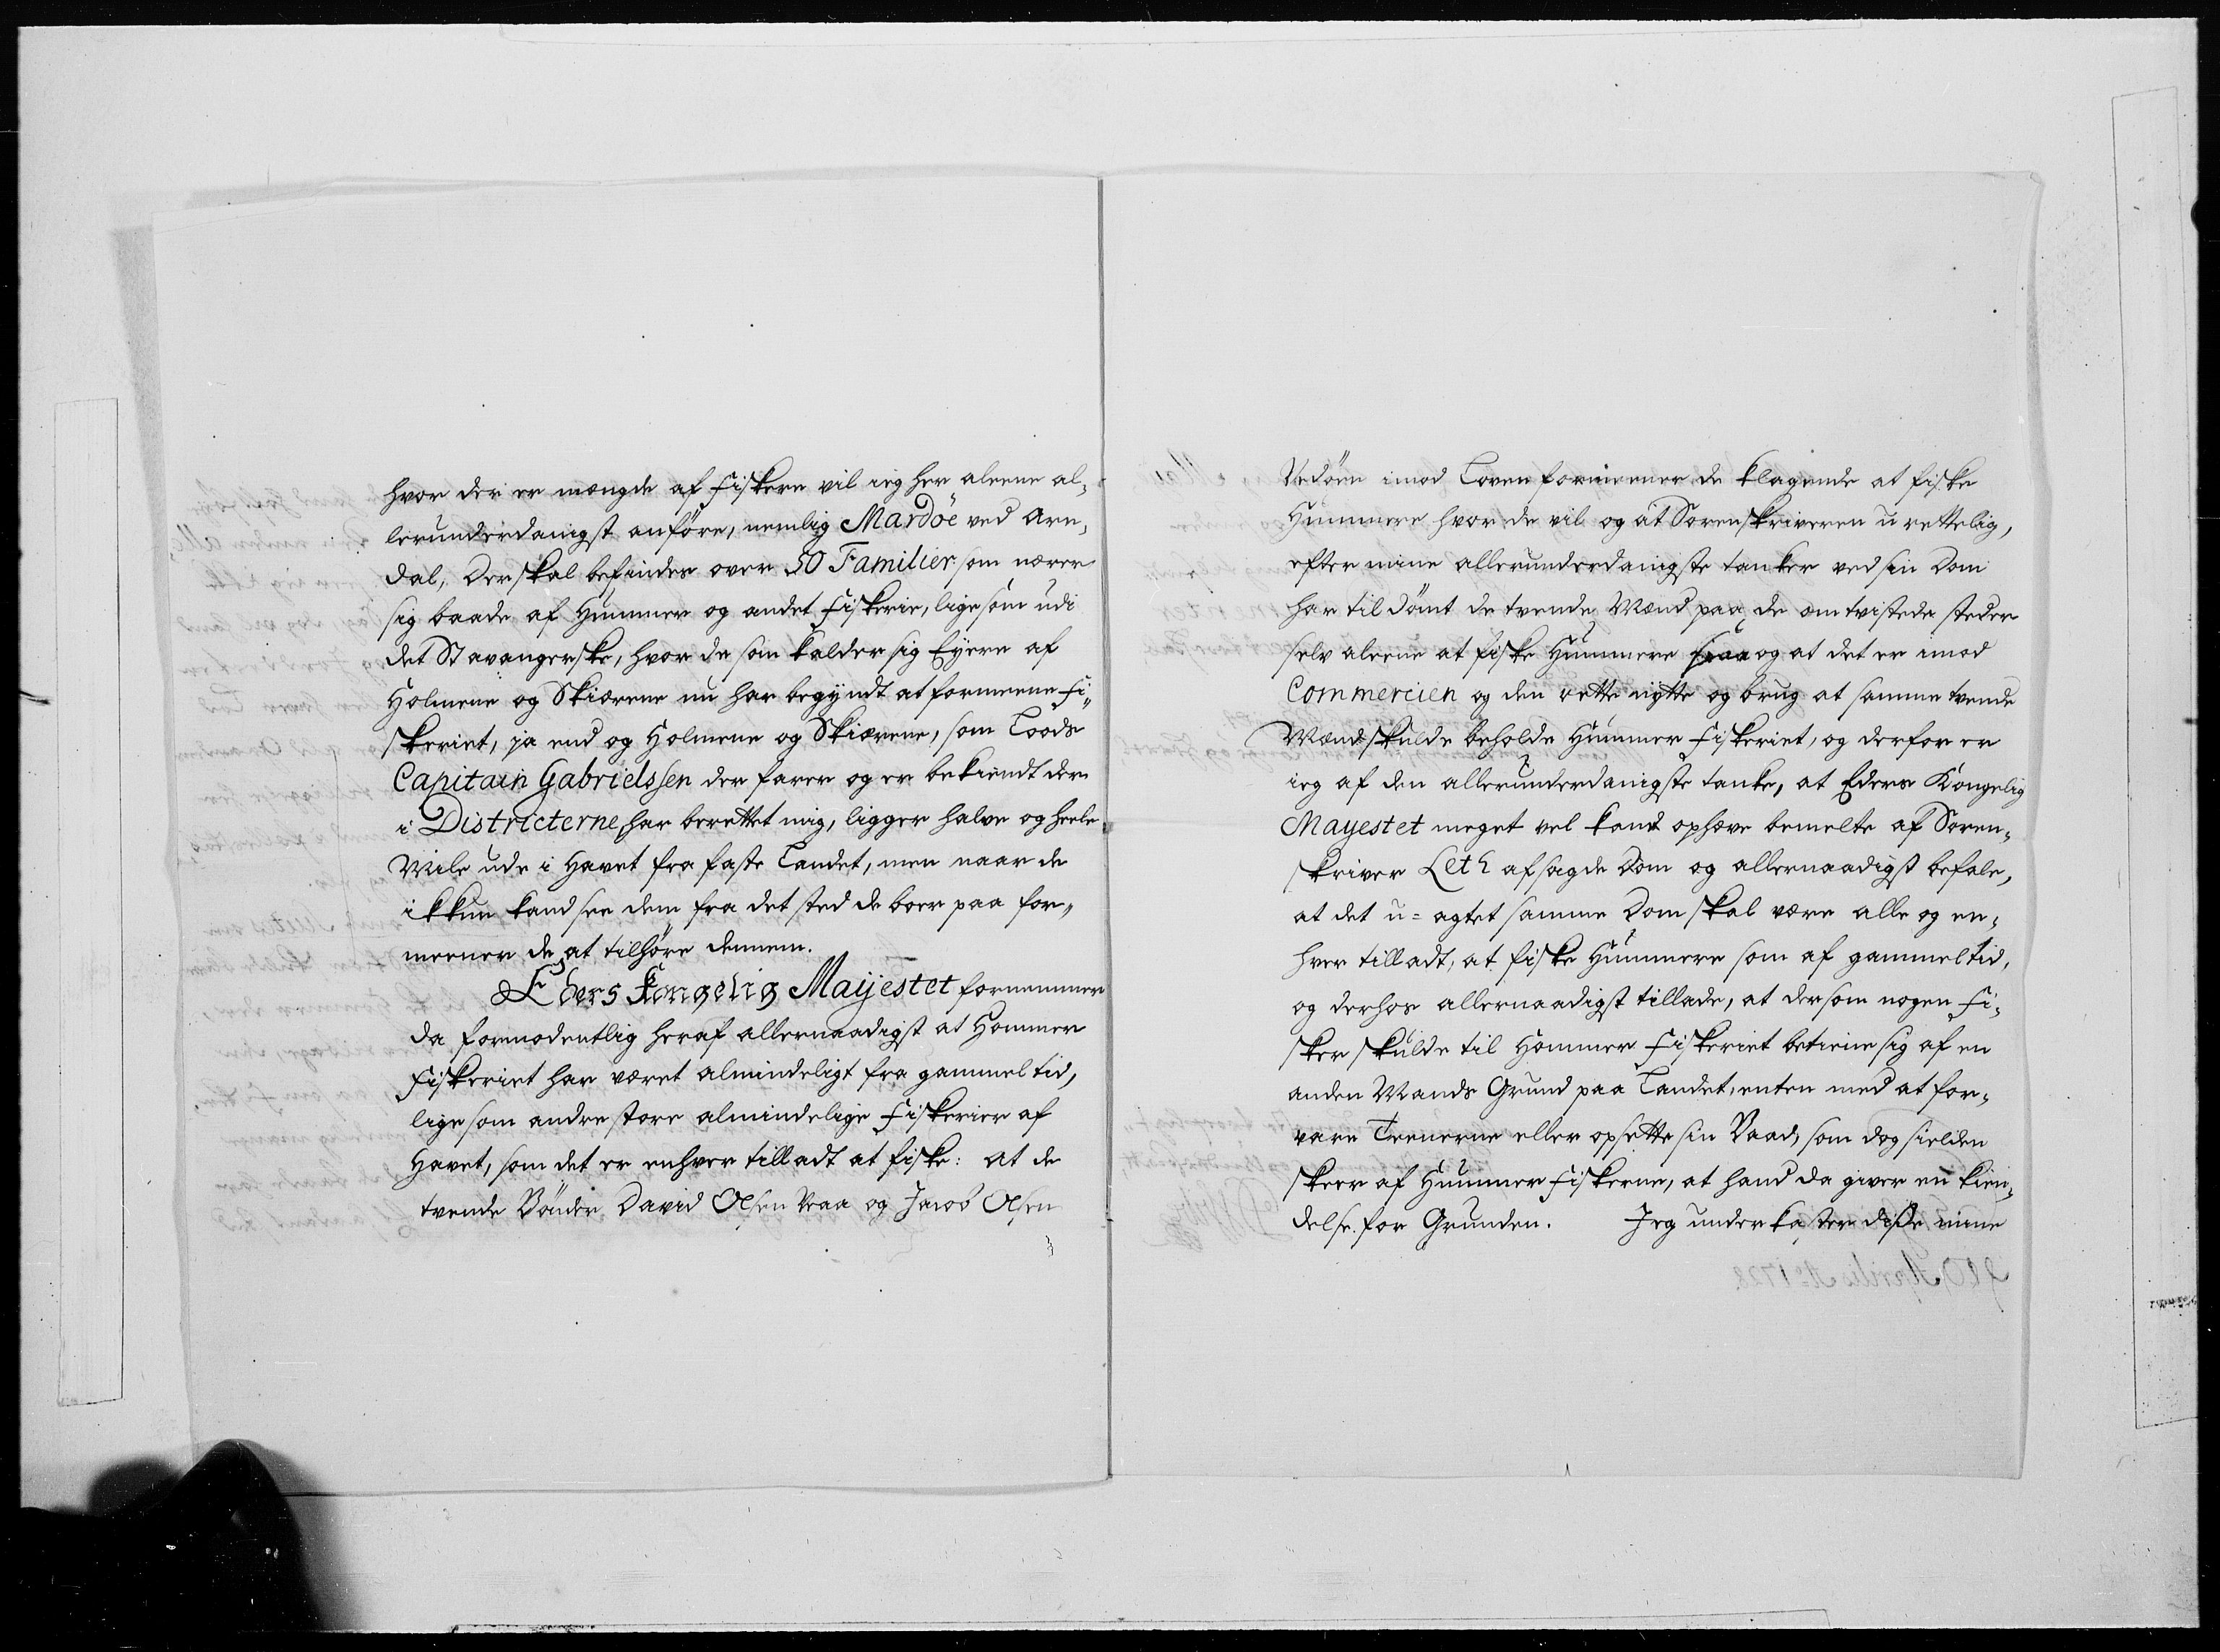 hvor der er mængde af fiskere vil ieg her aleene al„
lerunderdanigst anføre, nemlig Mardöe ved Aren„
dal, der skal befindes over 50 Familier som nærer
sig baade af Hummer og andet fiskerie, ligesom udi
det Stavangerske, hvor de som kalder sig Eyere af
Holmene og Skiærene nu har begyndt at formeene fi„
skeriet, ja end og Holmene og Skiærene, som Loods
Capitain Gabrielssen der farer og er bekiendt der
i Districterne har berettet mig, ligger halve og heele
Miile ude i Havet fra faste Landet, men naar de
ikkun kand see dem fra det sted de boer paa for„
meener de at tilhøre dennem.
Eders Kongelig Mayestet fornemmer
da formodentlig heraf allernaadigst at Hommer
fiskeriet har været almindeligt fra gammel tid,
lige som andre store almindelige fiskerier af
Havet, som det er enhver tilladt at fiske: at de
tvende Bönder David Olsen Vraa og Jacob Olsen
Vedöen imod Loven formeener de klagende at fiske
Hummere hvor de vil og at Sorenskriveren u-rettelig,
efter mine allerunderdanigste tanker ved sin Dom
har til dömt de tvende Mænd paa de omtvistede steder
selv aleene at fiske Hummere og at det er imod
Commercien og den rette nytte og brug at samme tvende
Mænd skulde beholde Hummer fiskeriet, og derfor er
ieg af den allerunderdanigste tanke, at Eders Kongelig
Mayestet meget vel kand ophæve bemelte af Soren„
skriver Leth afsagde Dom og allernaadigst befale,
at det u=agtet samme Dom skal være alle og en„
hver tilladt, at fiske Hummere som af gammel tid,
og derhos allernaadigst tillade, at dersom nogen fi„
sker skulde til Hommer fiskeriet betiene sig af en
anden Mands Grund paa Landet, enten med at for„
vare Teenerne eller opsette sin Baad, som dog sielden
skeer af Hummer fiskerne, at hand da giver en kien„
delse for Grunden. Jeg underkaster disse mine